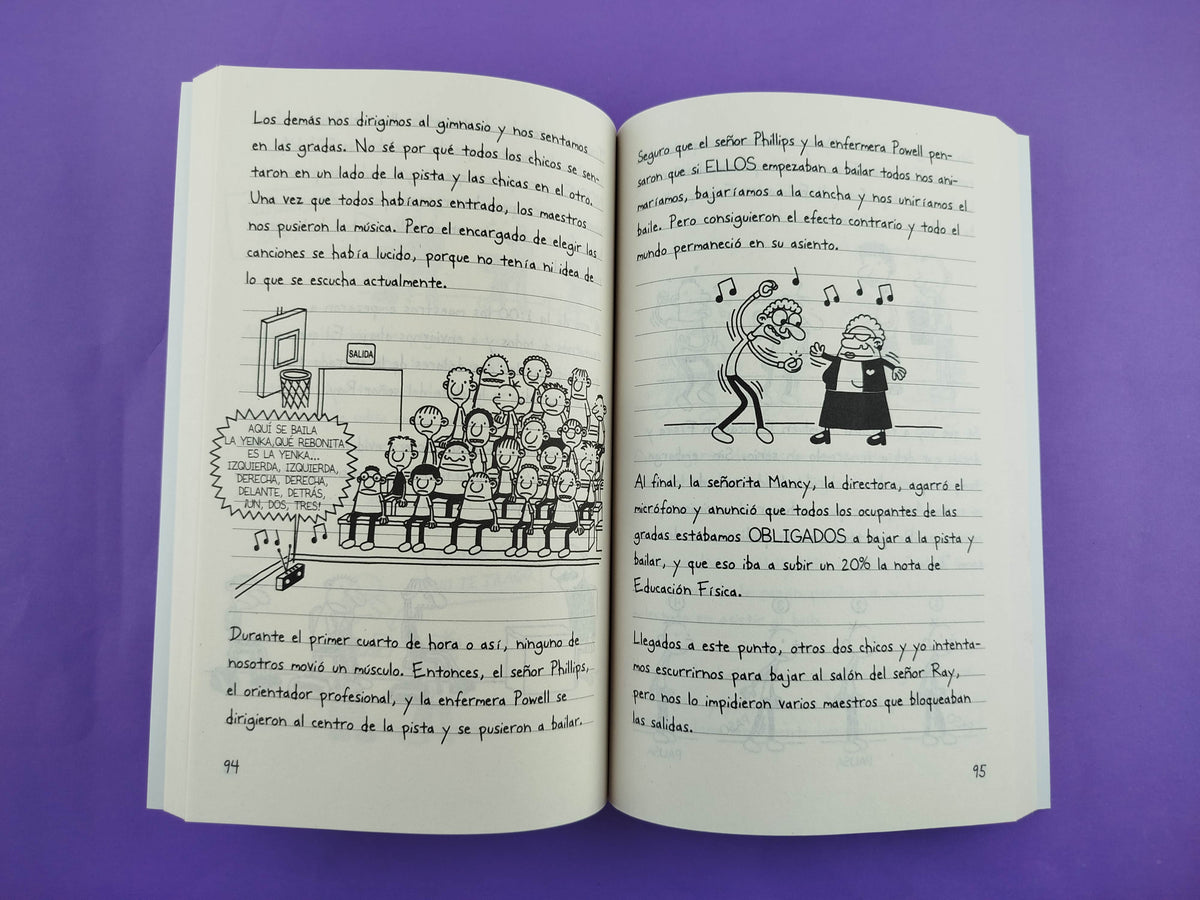 Los demás nos dirigimos al gimnasio y nos sentamos
en las gradas. No sé por qué todos los chicos se sen-
taron en un lado de la pista y las chicas en el otro.
Una vez que todos habíamos entrado, los maestros
nos pusieron la música. Pero el encargado de elegir las
canciones se había lucido, porque no tenía ni idea de
lo que se escucha actualmente.
SALIDA
AQUÍ SE BAILA
LA YENKA, QUÉ REBONITA
ES LA YENKA...
IZQUIERDA, IZQUIERDA,
DERECHA, DERECHA,
DELANTE, DETRÁS,
¡UN, DOS, TRES!
Durante el primer cuarto de hora o así, ninguno de
nosotros movió un músculo. Entonces, el señor Phillips,
el orientador profesional, y la enfermera Powell se
dirigieron al centro de la pista y se pusieron a bailar.
94
Seguro que el señor Phillips y la enfermera Powell pen-
saron que si ELLOS empezaban a bailar todos nos ani-
maríamos, bajaríamos a la cancha y nos uniríamos el
baile. Pero consiguieron el efecto contrario y todo el
mundo permaneció en su asiento.
Al final, la señorita Mancy, la directora, agarró el
micrófono y anunció que todos los ocupantes de las
gradas estábamos OBLIGADOS a bajar a la pista y
bailar, y que eso iba a subir un 20% la nota de
Educación Física.
Llegados a este punto, otros dos chicos y yo intenta-
mos escurrirnos para bajar al salón del señor Ray,
pero nos lo impidieron varios maestros que bloqueaban
las salidas.
95